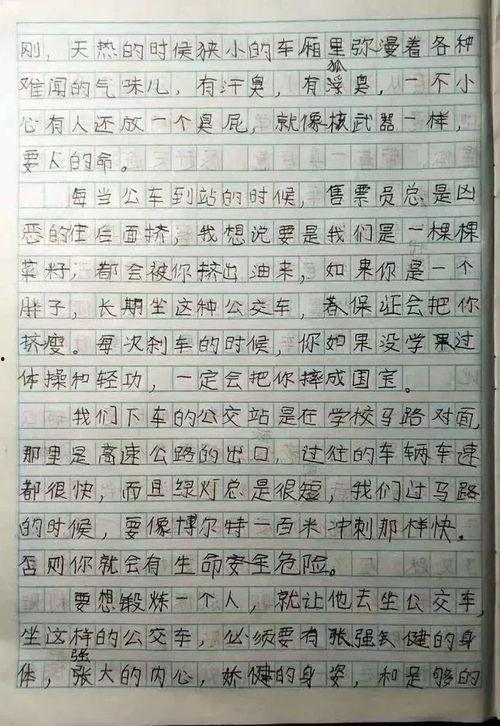 刚，天热的时候狭小的车厢里弥漫着各种
难闻的气味儿，有汗臭，有狐臭，一不小
心有人还放一个臭屁，就像核武器一样，
要人的命。
每当公车到站的时候，售票员总是凶
恶的往后面挤，我想说要是我们是一棵棵
菜籽，都会被你挤出油来，如果你是一个
胖子，长期坐这种公交车，春保证会把你
挤瘦。每次刹车的时候，你如果没学过
体操和轻功，一定会把你摔成国宝。
我们下车的公交站是在学校马路对面，
那里是高速公路的出口，过往的车辆车速
都很快，而且绿灯总是很短，我们过马路
的时候，要像博尔特一百米冲刺那样快。
否则你就会有生命安全危险。
要想锻炼一个人，就让他去坐公交车，
坐这样的公交车，必须要有强健的身
体，强大的内心，矫健的身姿，和足够的